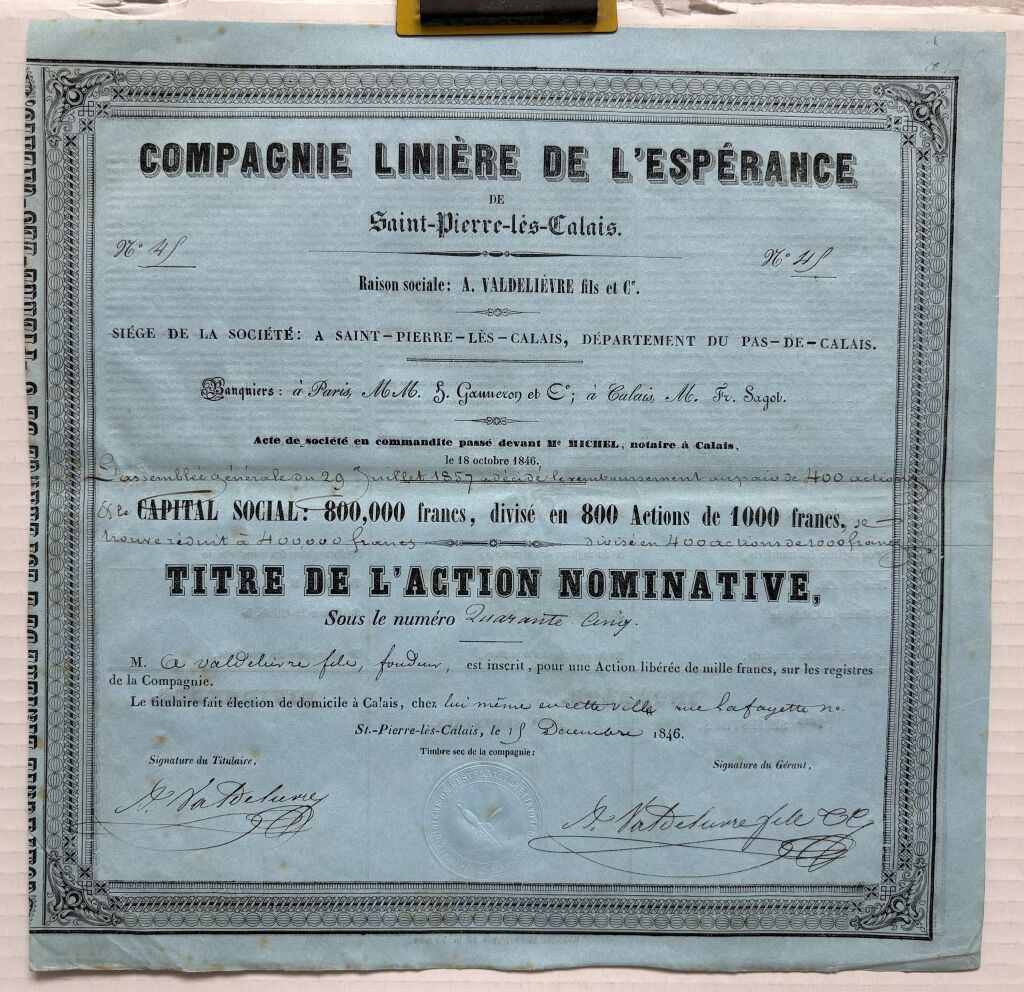 COMPAGNIE LINIÈRE DE L'ESPÉRANCE
DE
Saint-Pierre-lès-Calais.
N° 45
N° 45
Raison sociale: A. VALDELIÈVRE fils et Ce.
SIÉGE DE LA SOCIÉTÉ: A SAINT-PIERRE-LÈS-CALAIS, DÉPARTEMENT DU PAS-DE-CALAIS.
Banquiers: à Paris, MM. H. Ganneron et Ce; à Calais, M. Fr. Sagot.
Acte de société en commandite passé devant Me MICHEL, notaire à Calais,
le 18 octobre 1846.
L'assemblée générale du 29 Juillet 1857 a décidé le remboursement au pair de 400 actions
& le CAPITAL SOCIAL: 800,000 francs, divisé en 800 Actions de 1000 francs, se
trouve réduit à 400,000 francs divisé en 400 actions de 1000 francs
TITRE DE L'ACTION NOMINATIVE,
Sous le numéro Quarante Cinq.
M. A Valdelièvre fils, fondeur, est inscrit, pour une Action libérée de mille francs, sur les registres
de la Compagnie.
Le titulaire fait élection de domicile à Calais, chez lui même en cette ville rue Lafayette no.
St.-Pierre-lès-Calais, le 15 Décembre 1846.
Timbre sec de la compagnie:
Signature du Titulaire,
Signature du Gérant,
A. Valdelievre
A. Valdelievre fils & Ce